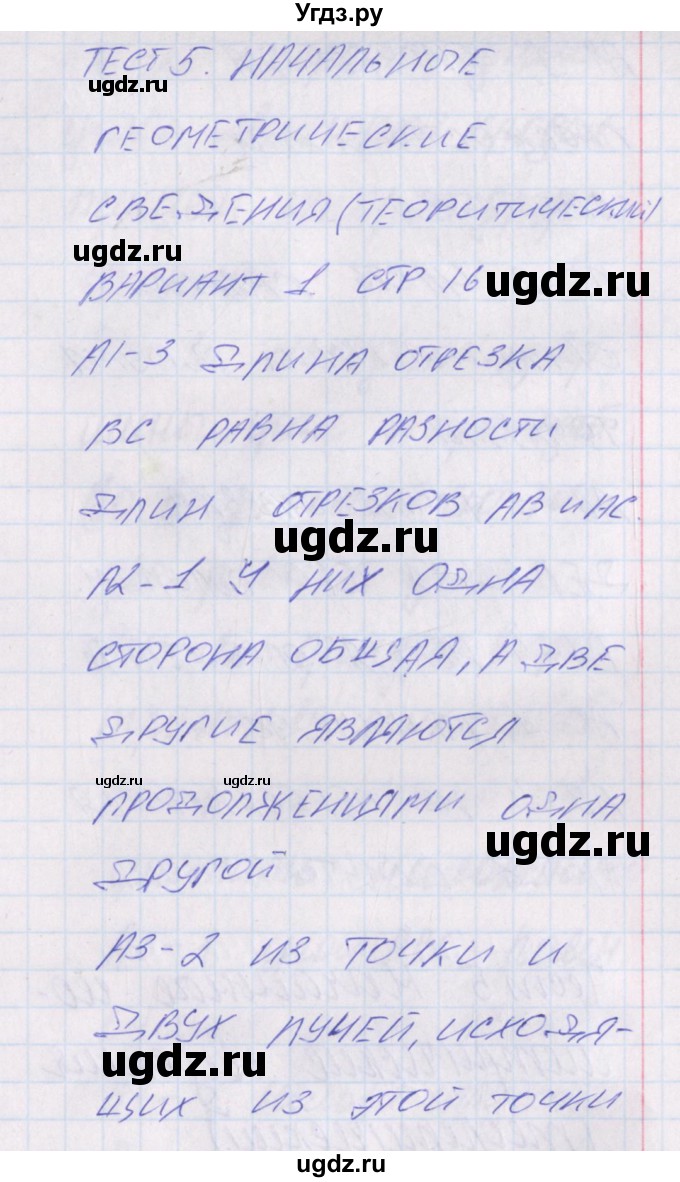 Угдз.ру
ТЕСТ 5. НАЧАЛЬНЫЕ
ugdz.ru
ГЕОМЕТРИЧЕСКИЕ
СВЕДЕНИЯ (ТЕОРИТИЧЕСКИЙ)
ugdz.ru
ugdz.ru
ВАРИАНТ 1 СТР 16
А1-3 ДЛИНА ОТРЕЗКА
ВС РАВНА РАЗНОСТИ
ДЛИН ОТРЕЗКОВ АВ И АС.
ugdz.ru
А2-1 У НИХ ОДНА
СТОРОНА ОБЩАЯ, А ДВЕ
ДРУГИЕ ЯВЛЯЮТСЯ
ugdz.ru ugdz.ru
ПРОДОЛЖЕНИЯМИ ОДНА
ugdz.ru
ДРУГОЙ
А3-2 ИЗ ТОЧКИ И
ДВУХ ЛУЧЕЙ, ИСХОДЯ-
ugdz.ru
ЩИХ ИЗ ЭТОЙ ТОЧКИ
ugdz.ru